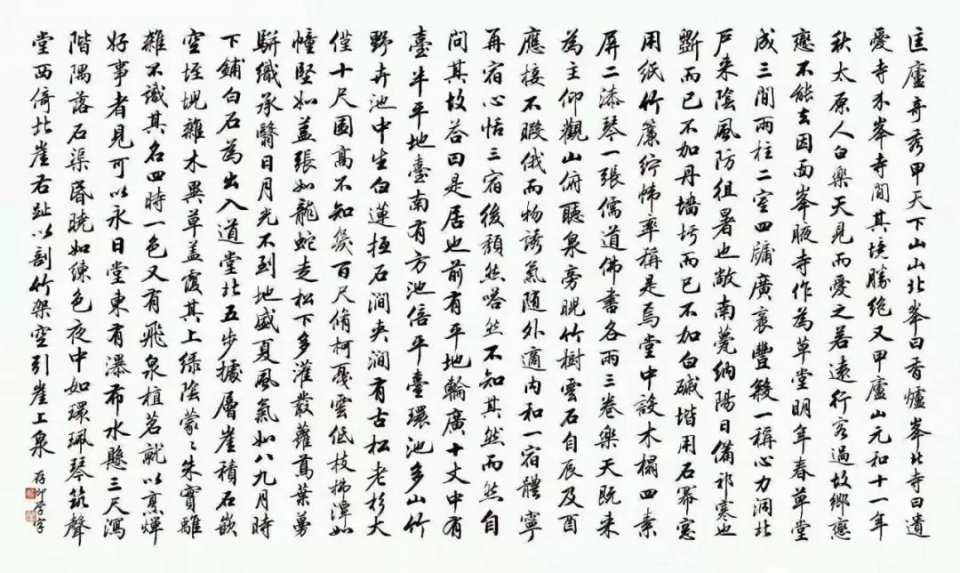 匡廬奇秀甲天下山山北峯曰香爐峯北寺曰遺
愛寺介峯寺間其境勝絕又甲廬山元和十一年
秋太原人白樂天見而愛之若遠行客過故鄉戀
戀不能去因面峯腋寺作為草堂明年春草堂
成三間兩柱二室四牖廣袤豐殺一稱心力洞北
戶來陰風防徂暑也敞南甍納陽日備祁寒也
斲而已不加丹墻圬而已不加白磩堦用石冪窓
用紙竹簾紵幃率稱是焉堂中設木榻四素
屏二漆琴一張儒道佛書各兩三卷樂天既來
為主仰觀山俯聽泉旁睨竹樹雲石自辰及酉
應接不暇俄而物誘氣隨外適內和一宿體寧
再宿心恬三宿後頹然嗒然不知其然而然自
問其故答曰是居也前有平地輪廣十丈中有
臺半平地臺南有方池倍平臺環池多山竹
野卉池中生白蓮極石澗夾澗有古松老杉大
僅十尺圍高不知幾百尺脩柯戛雲低枝拂潭如
幢竪如蓋張如龍蛇走松下多灌叢蘿蔦葉蔓
駢織承翳日月光不到地盛夏風氣如八九月時
下鋪白石為出入道堂北五步據層崖積石嵌
空垤堄雜木異草蓋覆其上綠陰蒙〻朱實離
雜不識其名四時一色又有飛泉植茗就以烹燀
好事者見可以永日堂東有瀑布水懸三尺瀉
階隅落石渠昏曉如練色夜中如環珮琴筑聲
堂西倚北崖右趾以剖竹架空引崖上泉